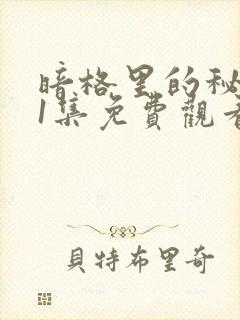 暗格里的秘
1集免費觀看
貝特布里奇